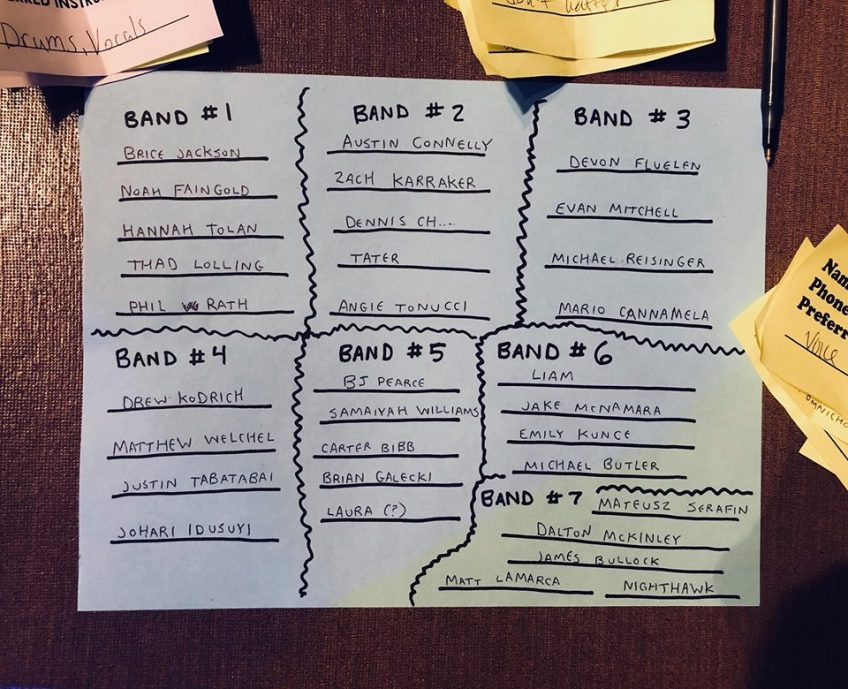 Drums, Vocals
BAND #1
BRICE JACKSON
NOAH FAINGOLD
HANNAH TOLAN
THAD LOLLING
PHIL RATH
BAND #2
AUSTIN CONNELLY
ZACH KARRAKER
DENNIS CH...
TATER
ANGIE TONUCCI
BAND #3
DEVON FLUELEN
EVAN MITCHELL
MICHAEL REISINGER
MARIO CANNAMELA
BAND #4
DREW KODRICH
MATTHEW WELCHEL
JUSTIN TABATABAI
JOHARI IDUSUYI
BAND #5
BJ PEARCE
SAMAIYAH WILLIAMS
CARTER BIBB
BRIAN GALECKI
LAURA (?)
BAND #6
LIAM
JAKE MCNAMARA
EMILY KUNCE
MICHAEL BUTLER
BAND #7
MATEUSZ SERAFIN
DALTON MCKINLEY
JAMES BULLOCK
MATT LAMARCA
NIGHTHAWK
Nam
Phone
Preferr
Voice